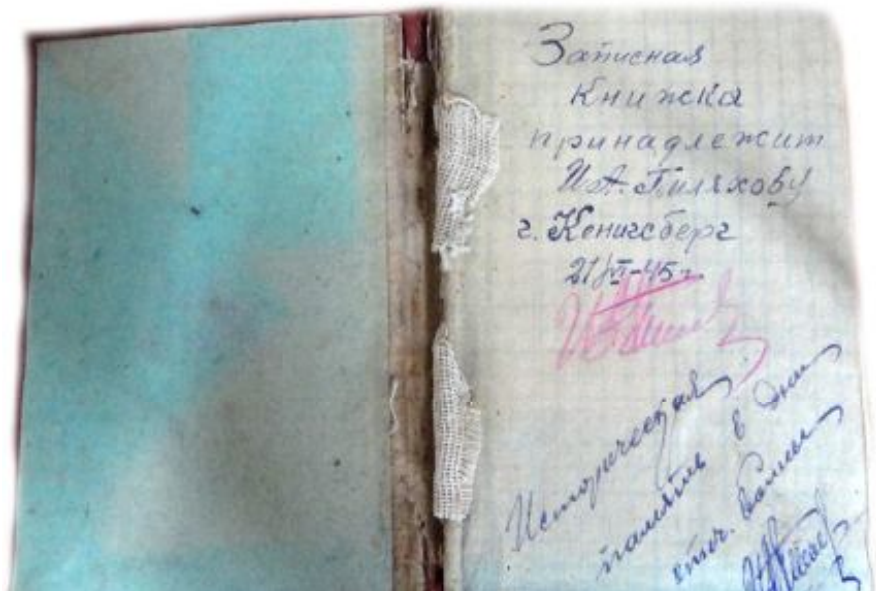 Записная
книжка
принадлежит
И.А. Биляхову
г. Кенигсберг
21/VI-45 г.
Историческая
память в дни
отеч. войны